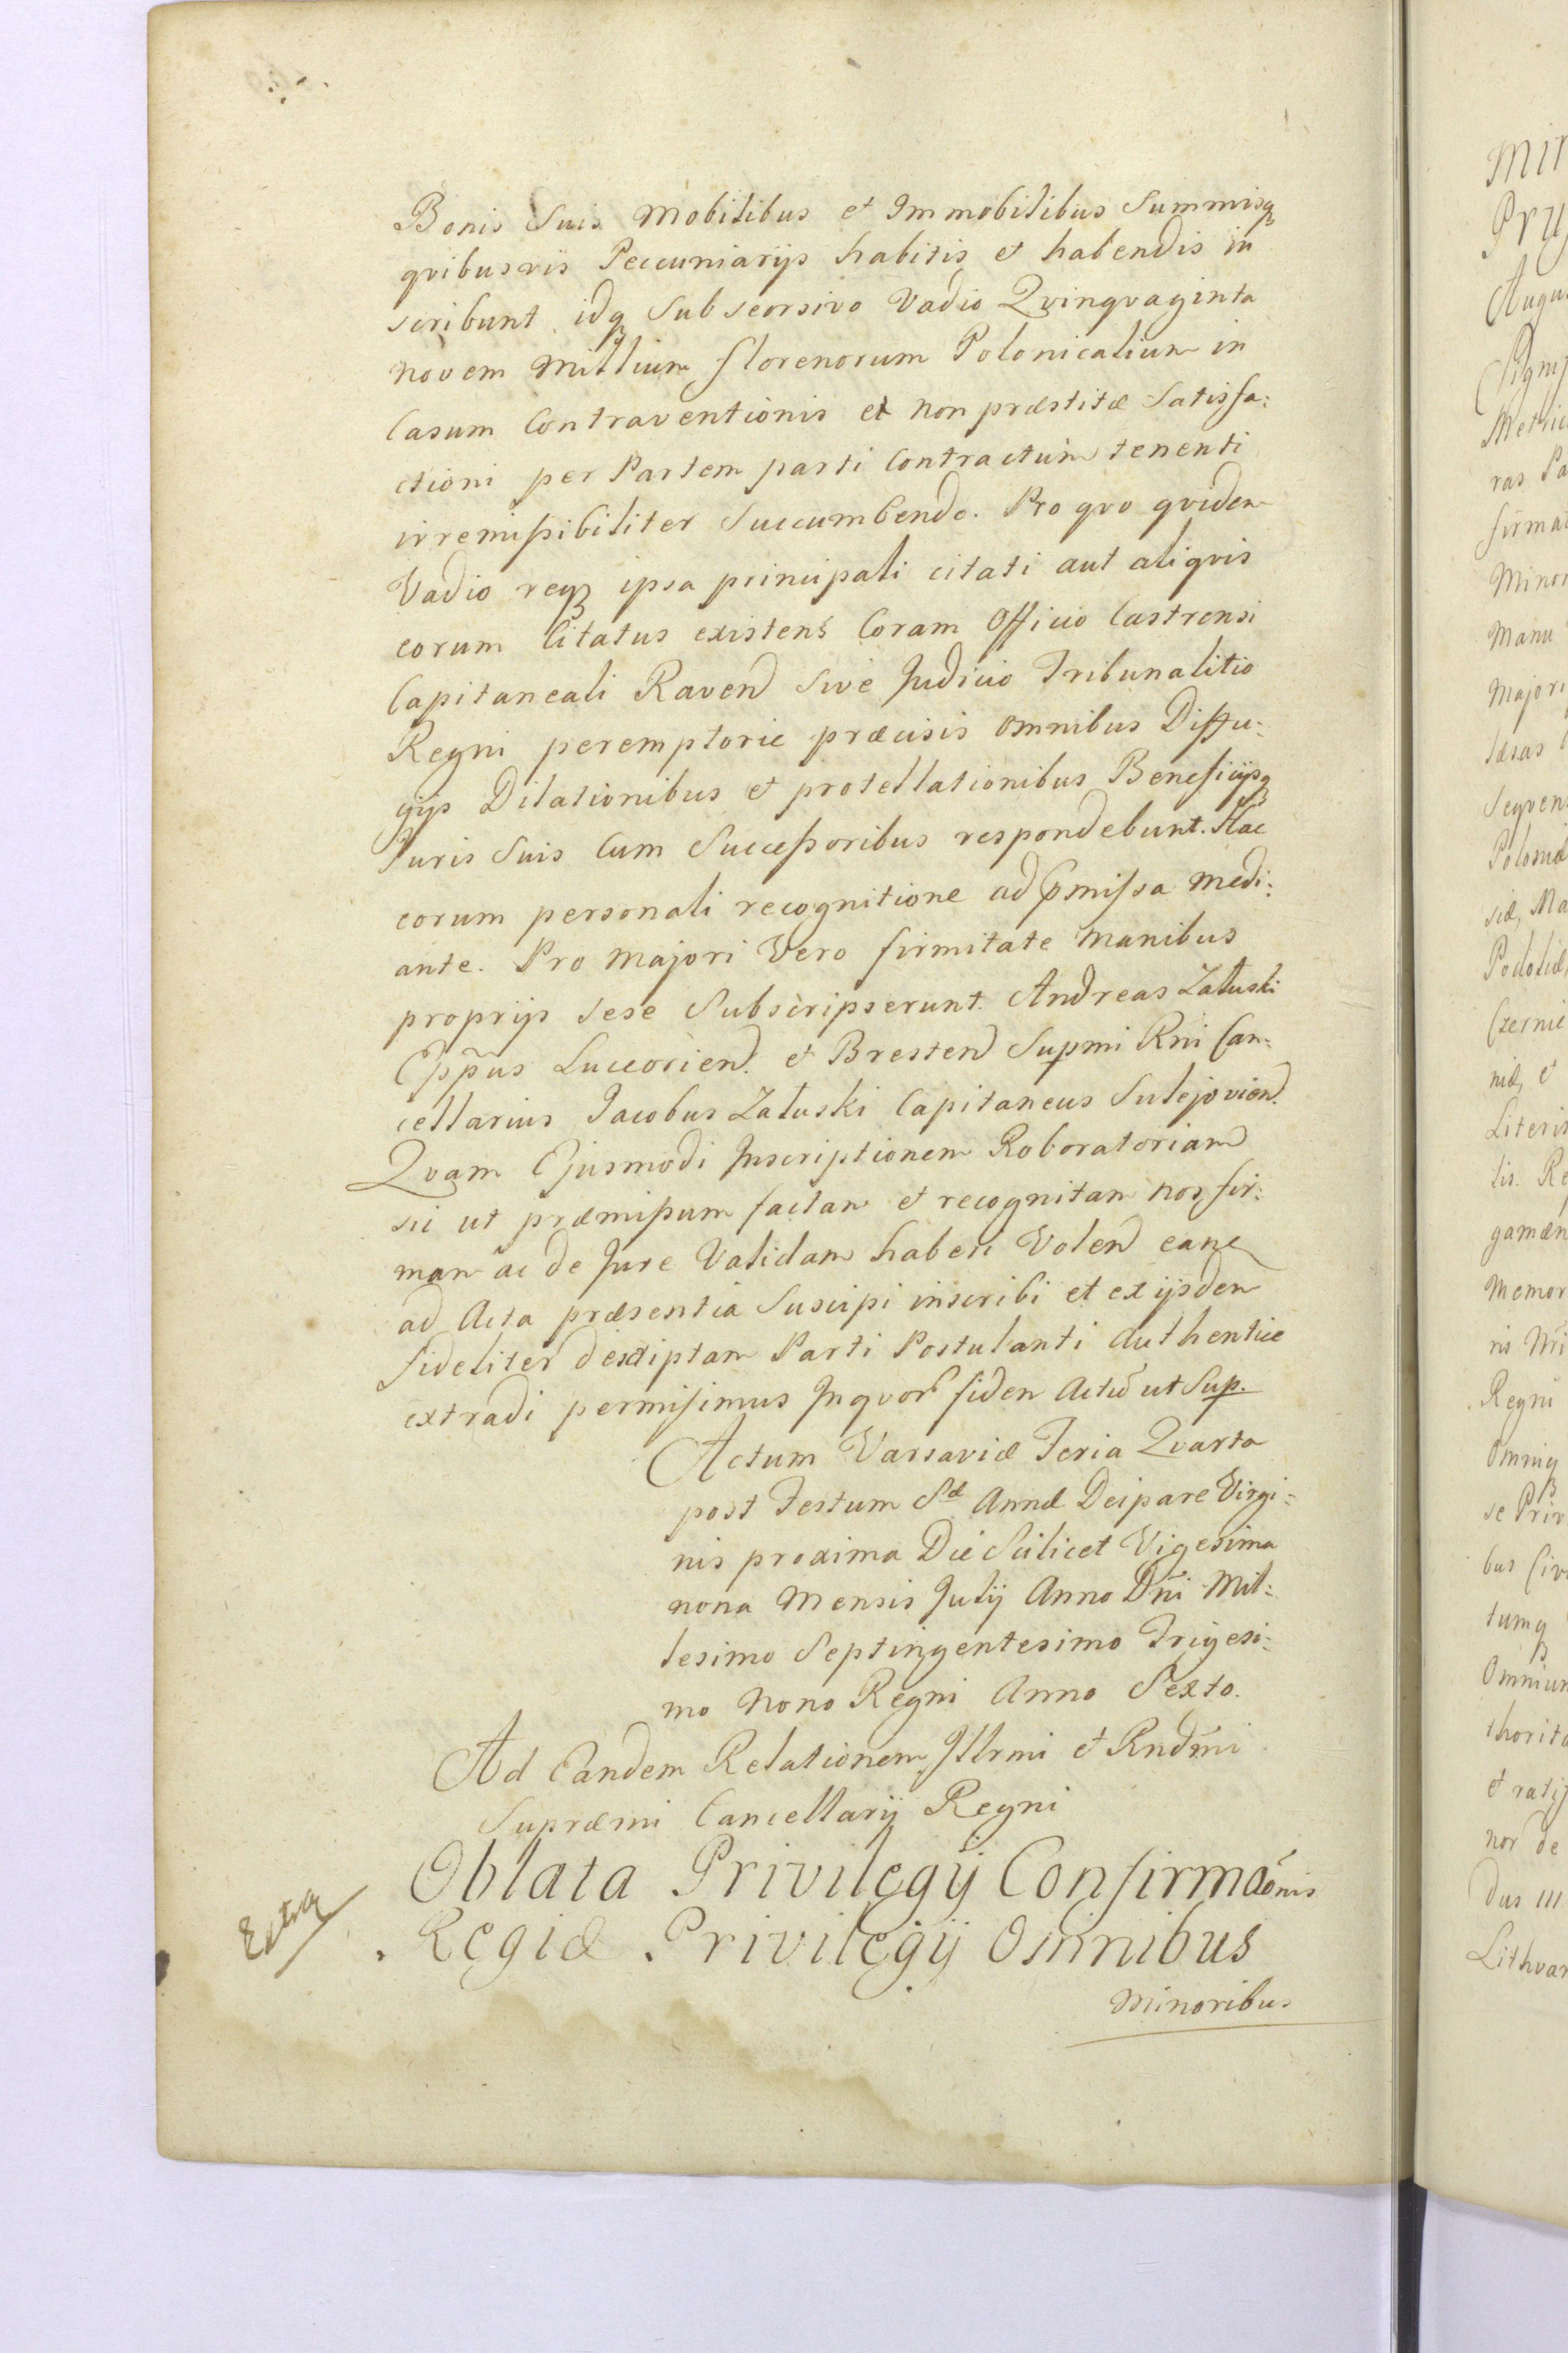 Bonis Suis Mobilibus et Immobilibus Summisq
qvibusvis Peccuniarijs habitis et habendis in
scribunt idq Sub seorsivo Vadio Qvinqvaginta
novem Millium florenorum Polonicalium in
Casum Contraventionis et non præstitæ Satisfa:
ctioni per Partem parti Contractum tenenti
irremißibiliter Succumbendo. Pro qvo qvidem
Vadio reqz ipsa principali citati aut aliqvis
eorum Citatus existens Coram Officio Castrensi
Capitaneali Ravend Sive Judicio Tribunalitio
Regni peremptorie præcisis omnibus Diffu:
gijs Dilationibus et protellationibus Beneficijsq
Juris Suis Cum Succeßoribus respondebunt. Hac
eorum personali recognitione ad pmissa medi:
ante. Pro Majori Vero firmitate Manibus
proprijs sese Subscripserunt. Andreas Załuski
Eppus Luceorien. et Bresten Supmi Rni Can:
cellarius Jacobus Załuski Capitaneus Sulejovien.
Qvam Ejusmodi Inscriptionem Roboratoriam
sic ut præmißum factam et recognitam nos fir:
mam ac de Jure Validam haberi Volend eanq
ad Acta præsentia Suscipi inscribi et ex ijsdem
fideliter descriptam Parti Postulanti Authentice
extradi permisimus Inqvor fidem Actu ut Sup.
Actum Varsaviæ Feria Qvarta
post Festum Sæ Annæ Deipare Virgi:
nis proxima Die Scilicet Vigesima
nona Mensis Julij Anno Dni Mil:
lesimo Septingentesimo Trigesi:
mo Nono Regni Anno Sexto.
Ad Eandem Relationem Illrmi et Rndmi
Supræmi Cancellarij Regni
Extra
Oblata Privilegij Confirmaonis
Regiæ Privilegij Omnibus
Minoribus